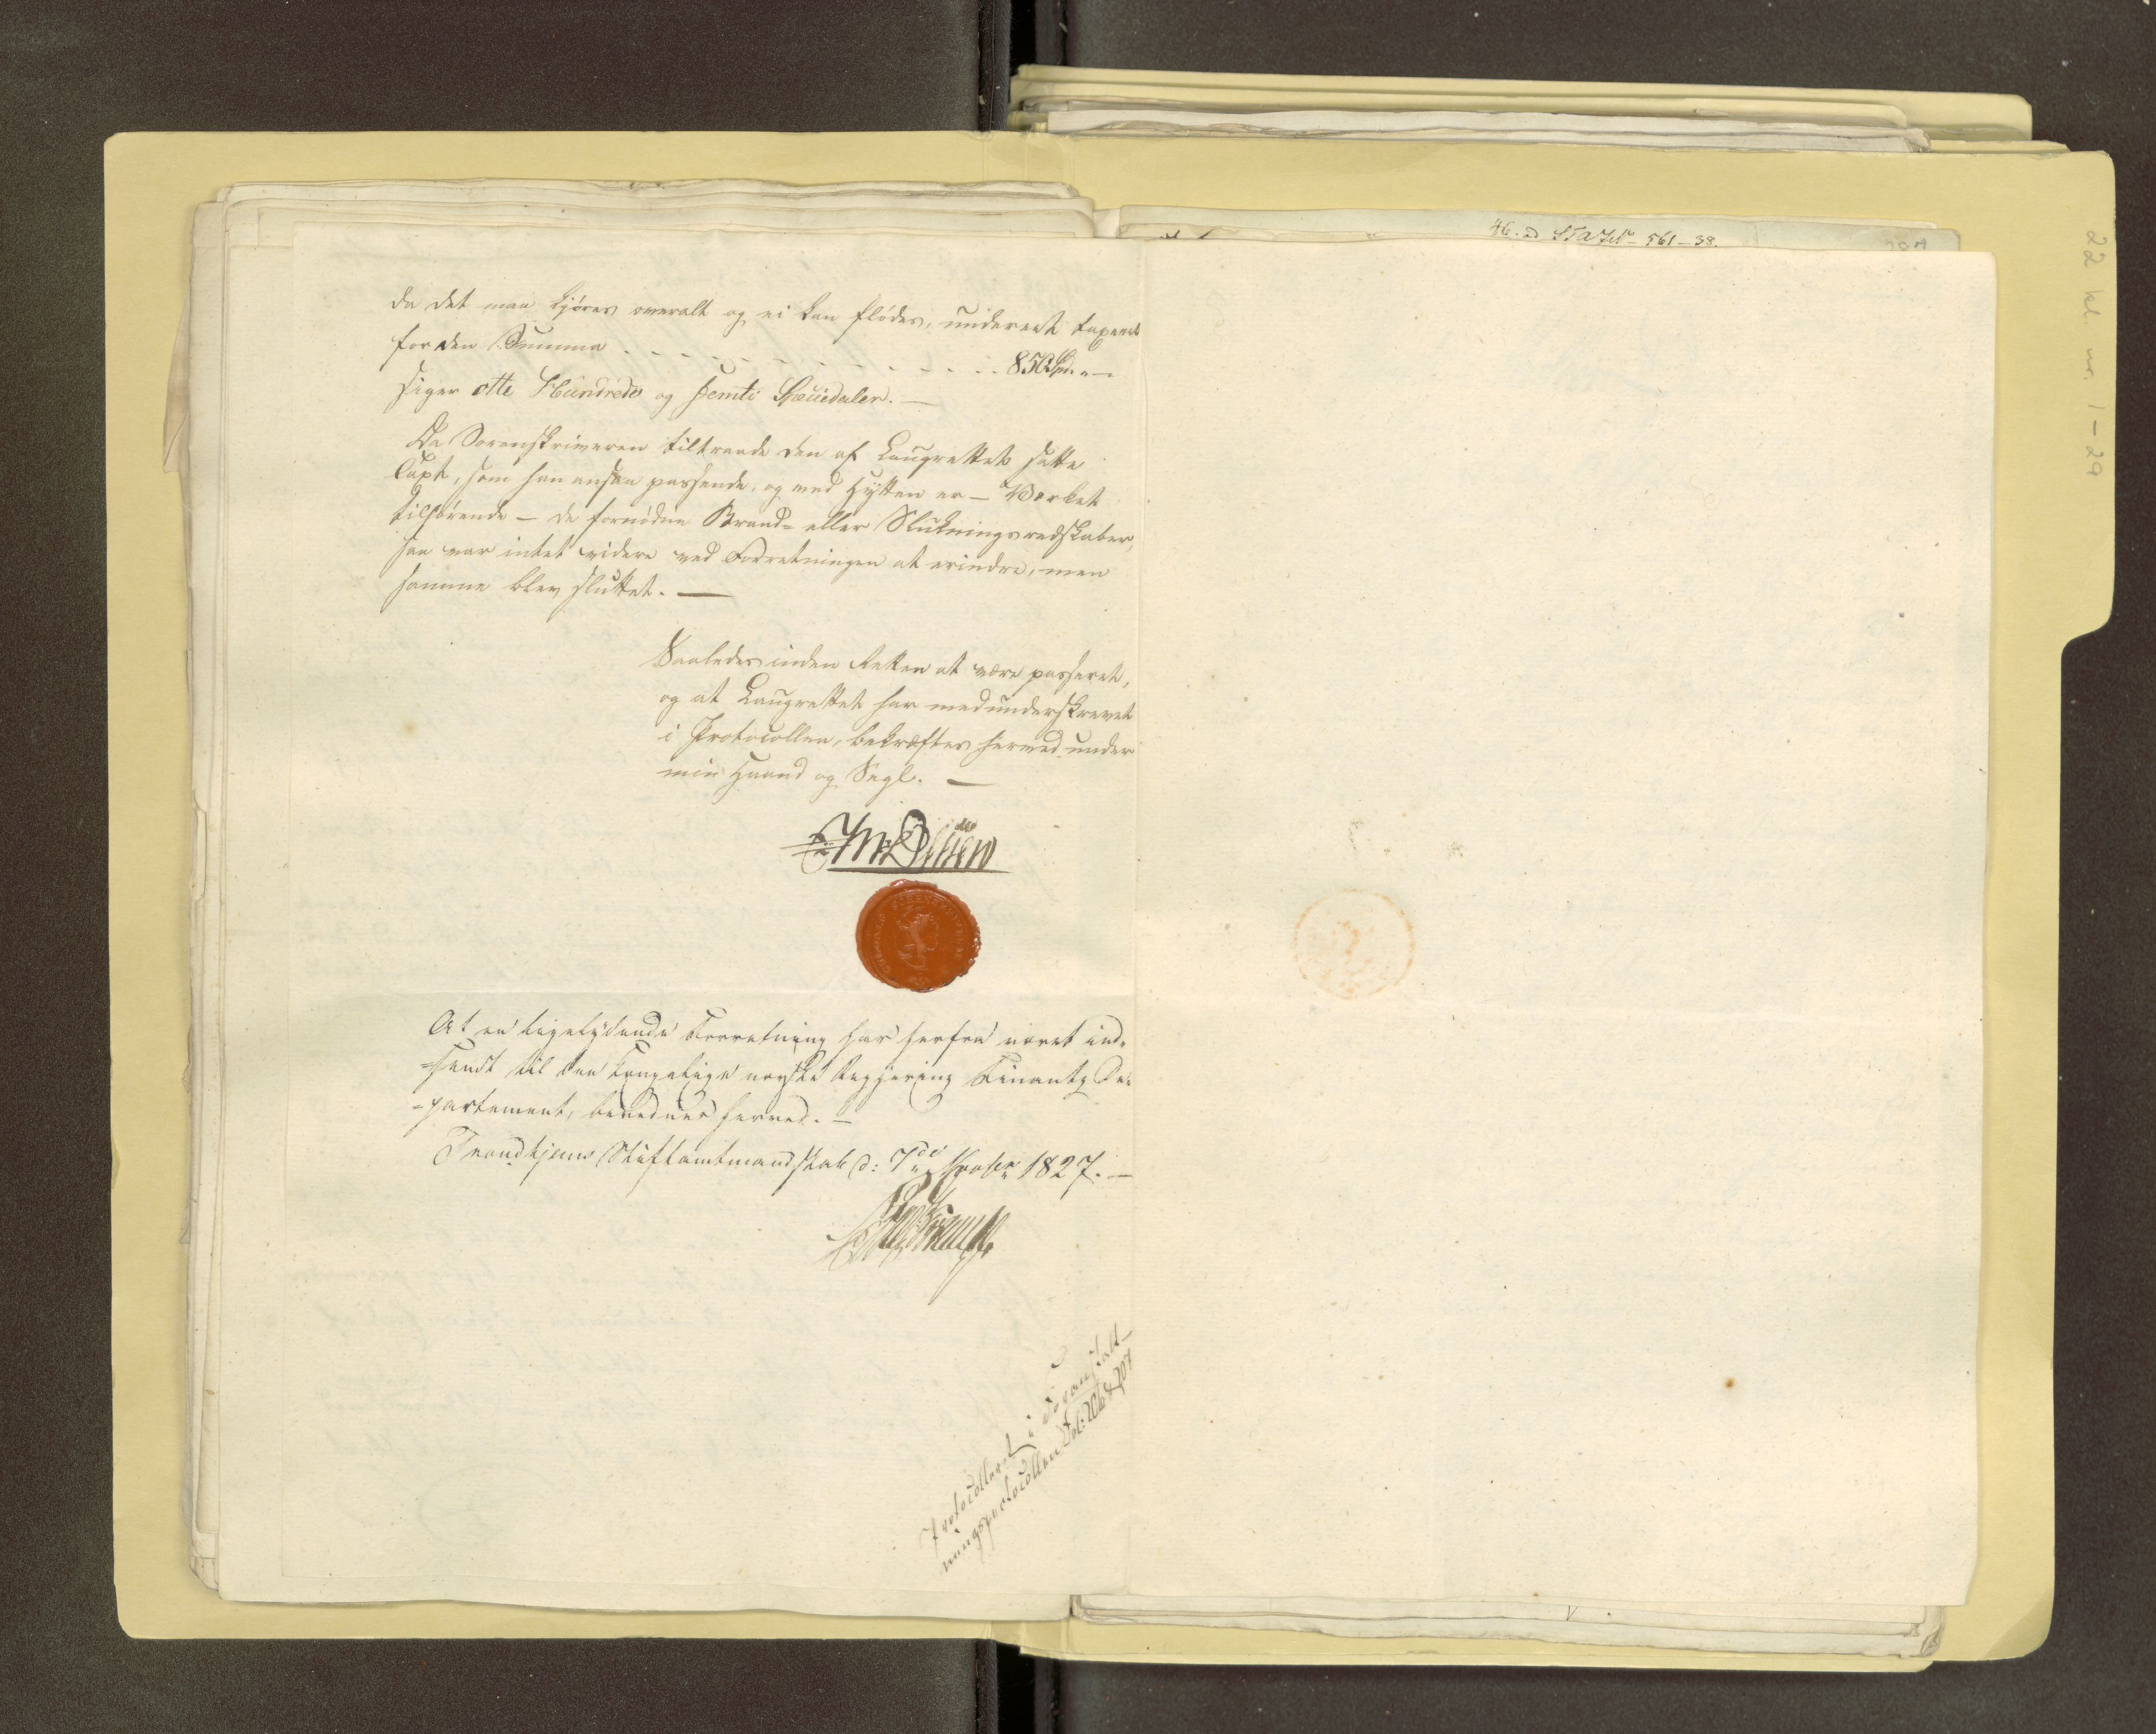 46. ad 561-38.
22 kl. nr. 1-29
da det maa kjøres overalt og ei kan flødes, undereet taxeret
for den Summa . . . . . . . . . . . . 850 Spd. " —
siger otte Hundrede og femti Speciedaler. —
Da Sorenskriveren tiltraade den af Laugrettet satte
Taxt, som han ansaa passende, og med Hytten er – Værket
tilhørende – de fornødne Brand- eller Slukningsredskaber,
saa var intet videre ved Forretningen at erindre, men
samme blev sluttet. —
Saaledes inden Retten at være passeret,
og at Laugrettet har medunderskrevet
i Protocollen, bekræftes herved under
min Haand og Segl. —
At en ligelydende Forretning har herfra været ind-
=sendt til den kongelige norske Regjerings Finants De-
=partement, bevidnes herved. —
Trondhjems Stiftamtmandskab d: 7de 1827. —
Protocolleret i Foranstalt-
ningsprotocollen Fol: 206 & 207